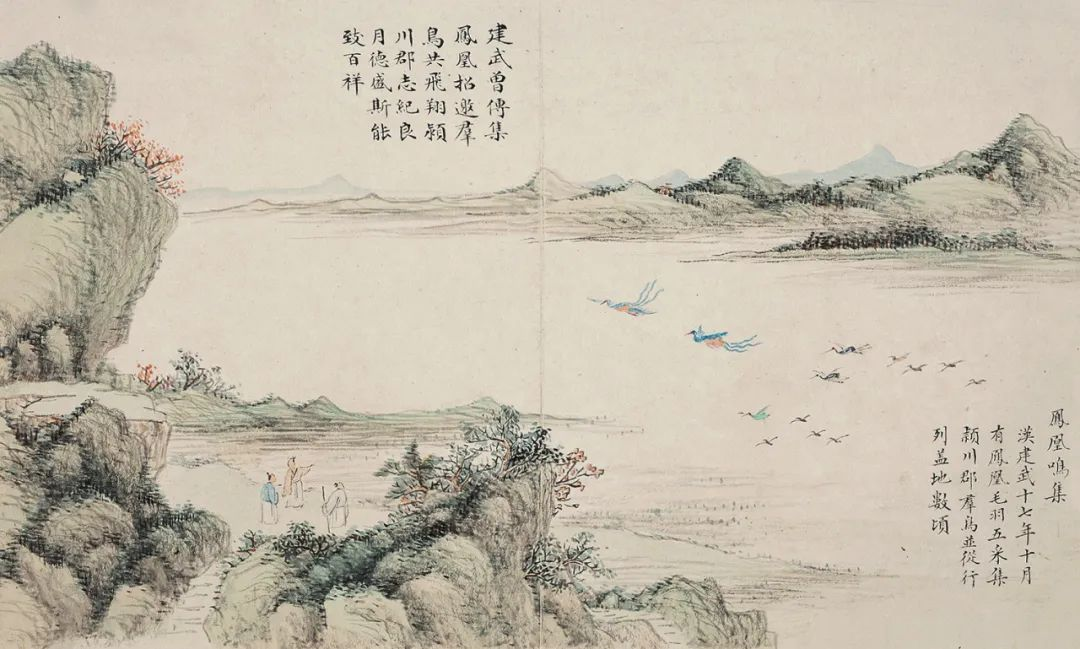 建武曾傳集
鳳凰招邀羣
鳥共飛翔潁
川郡志紀良
月德盛斯能
致百祥
鳳凰鳴集
漢建武十七年十月
有鳳凰毛羽五采集
潁川郡羣鳥並從行
列盖地數頃